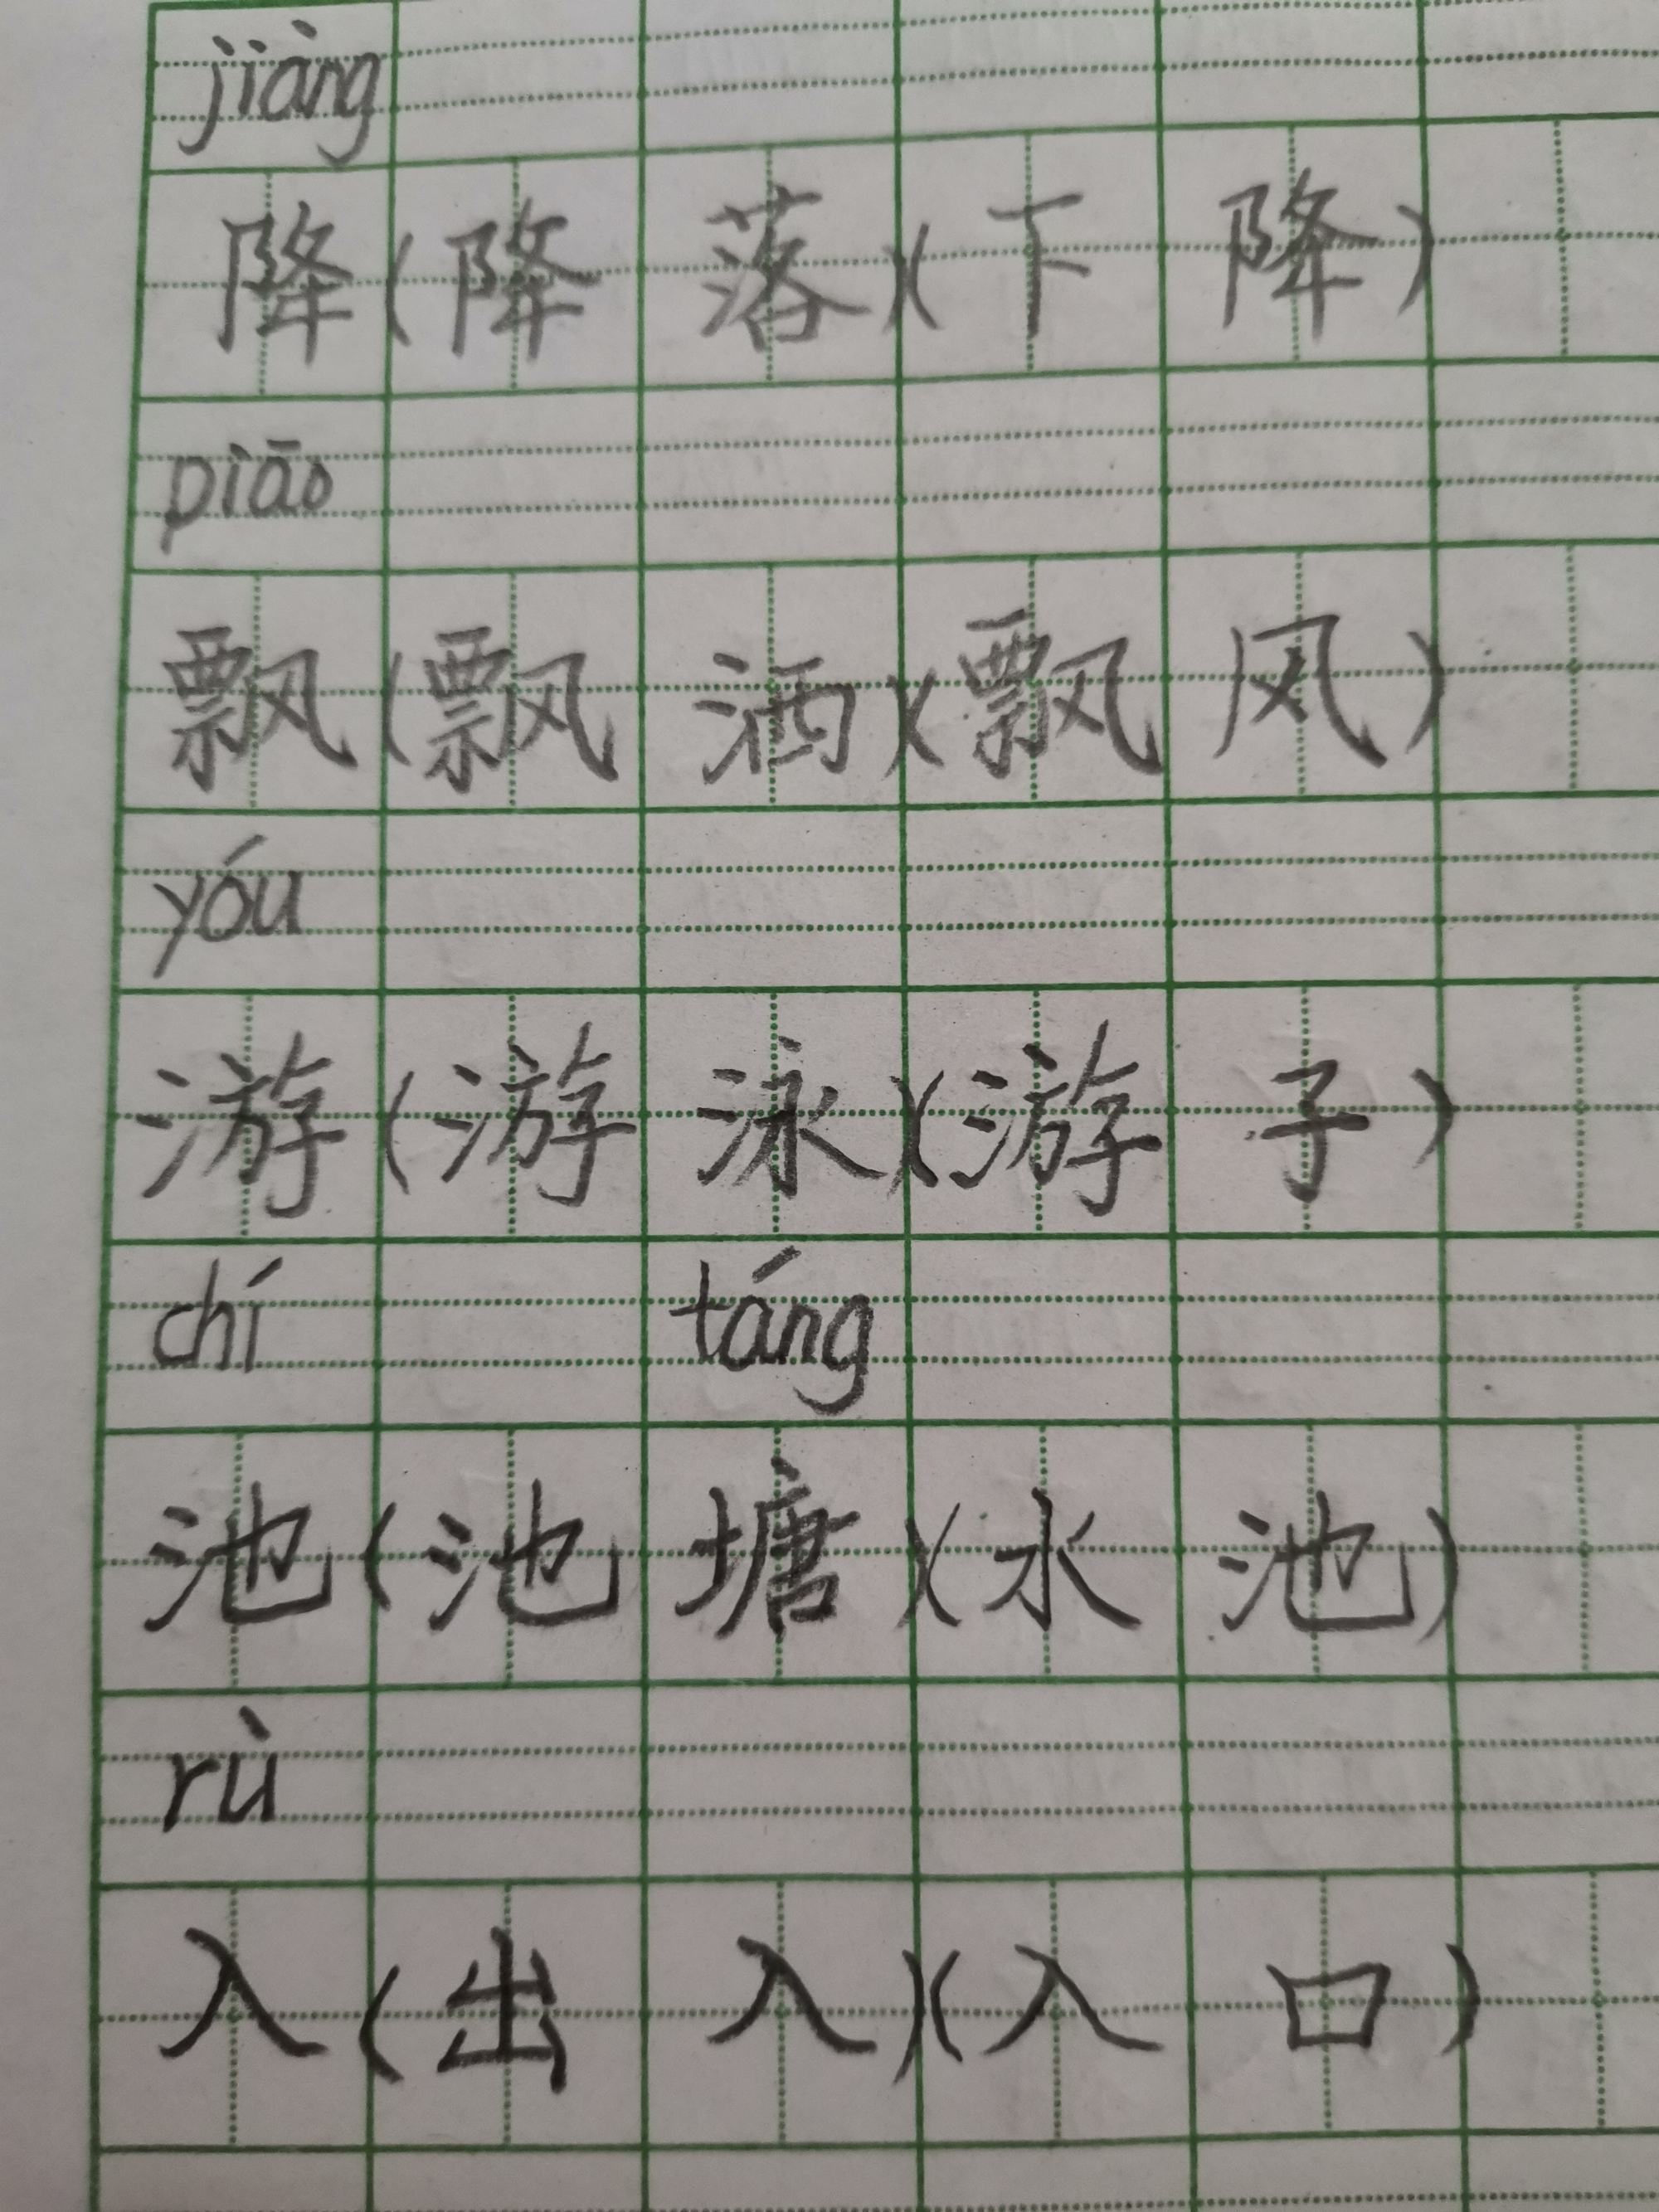 jiàng
降(降落)(下降)
piāo
飘(飘洒)(飘风)
yóu
游(游泳)(游子)
chí táng
池(池塘)(水池)
rù
入(出入)(入口)